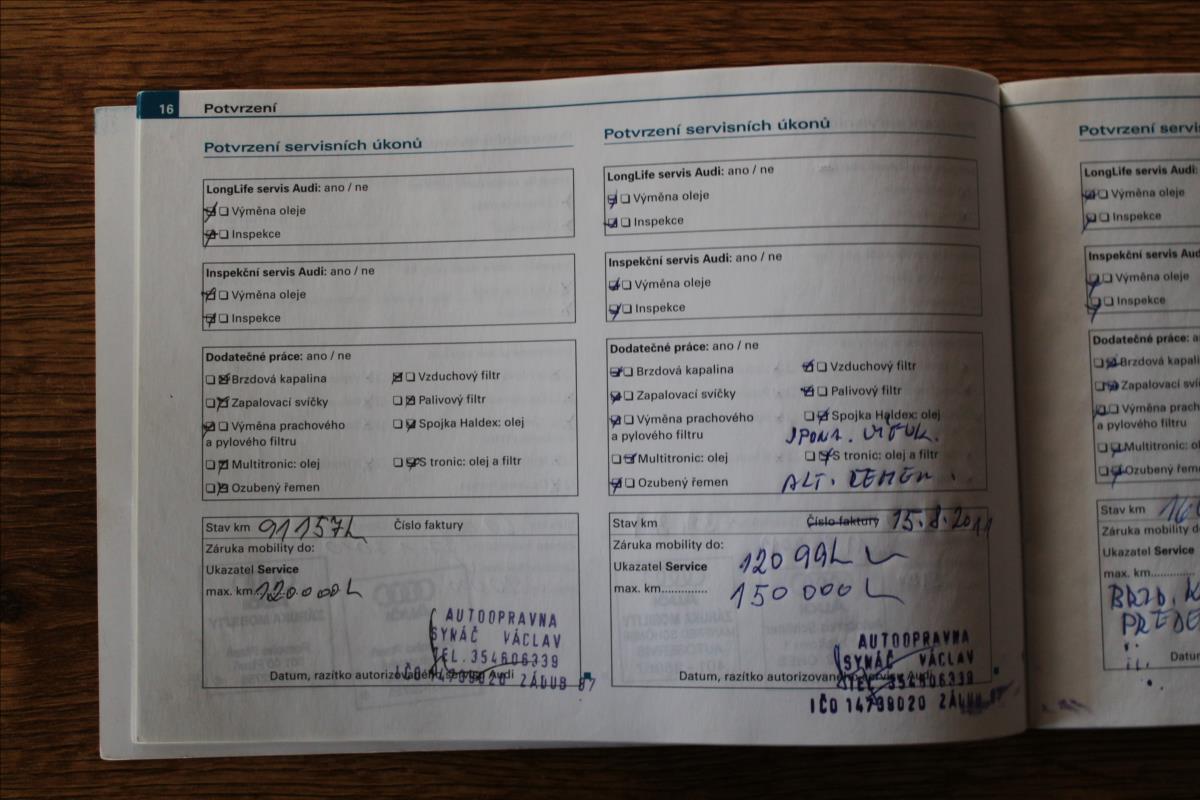 16 Potvrzení
Potvrzení servisních úkonů
LongLife servis Audi: ano / ne
Výměna oleje
Inspekce
Inspekční servis Audi: ano / ne
Výměna oleje
Inspekce
Dodatečné práce: ano / ne
Brzdová kapalina Vzduchový filtr
Zapalovací svíčky Palivový filtr
Výměna prachového Spojka Haldex: olej
a pylového filtru
Multitronic: olej S tronic: olej a filtr
Ozubený řemen
Stav km 91157 Číslo faktury
Záruka mobility do:
Ukazatel Service
max. km 120000
AUTOOPRAVNA
SYNÁČ VÁCLAV
TEL. 354606339
IČO 14739020 ZÁDUB 87
Datum, razítko autorizovaného servisu Audi
Potvrzení servisních úkonů
LongLife servis Audi: ano / ne
Výměna oleje
Inspekce
Inspekční servis Audi: ano / ne
Výměna oleje
Inspekce
Dodatečné práce: ano / ne
Brzdová kapalina Vzduchový filtr
Zapalovací svíčky Palivový filtr
Výměna prachového Spojka Haldex: olej
a pylového filtru
Multitronic: olej S tronic: olej a filtr
Ozubený řemen ALT. ŘEMEN.
Stav km Číslo faktury 15.8.2011
Záruka mobility do:
Ukazatel Service
max. km.............. 150 000
AUTOOPRAVNA
SYNÁČ VÁCLAV
TEL. 354606339
Datum, razítko autorizovaného servisu Audi
IČO 14739020 ZÁDUB 87
Potvrzení servi
LongLife servis Audi:
Výměna oleje
Inspekce
Inspekční servis Aud
Výměna oleje
Inspekce
Dodatečné práce: a
Brzdová kapalina
Zapalovací svíčky
Výměna prachové
a pylového filtru
Multitronic: olej
Ozubený řemen
Stav km 16
Záruka mobility do
Ukazatel Service
max. km............
BRZD. K
PŘEDE
Datu